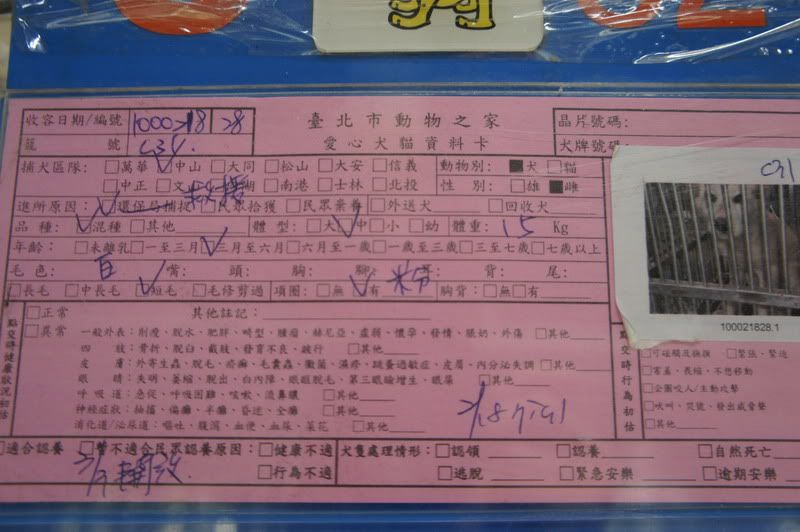 收容日期/編號 1000218 28 臺北市動物之家 晶片號碼:
籠 號 C31 愛心犬貓資料卡 犬牌號碼
C31
捕犬區隊: □萬華 ☑中山 □大同 □松山 □大安 □信義 動物別: ■犬 □貓
□中正 □文 湖 □南港 □士林 □北投 性 別: □雄 ■雌
進所原因: ☑環保局捕捉 □民眾拾獲 □民眾棄養 □外送犬 □回收犬
品 種: ☑混種 □其他 體 型: □大 ☑中 □小 □幼 體重: 15 Kg
年齡: □未離乳 □一至三月 ☑三月至六月 □六月至一歲 □一至三歲 □三至七歲 □七歲以上
毛 色: 白 嘴: 頭: 胸: 腳: 背: 尾:
□長毛 □中長毛 ☑短毛 □毛修剪過 項圈: □無 ☑有 粉 胸背: □無 □有
100021828.1
□正常 其他註記:
□異常 一般外表: 削瘦、脫水、肥胖、畸型、腫瘤、赫尼亞、虛弱、懷孕、發情、脹奶、外傷 □其他
四 肢: 骨折、脫臼、截肢、發育不良、跛行 □其他
皮 膚: 外寄生蟲、脫毛、疥癬、毛囊蟲、黴菌、濕疹、跳蚤過敏症、皮屑、內分泌失調 □其他
眼 睛: 失明、萎縮、脫出、白內障、眼瞼脫毛、第三眼瞼增生、眼屎 □其他
呼 吸 道: 急促、呼吸困難、咳嗽、流鼻膿 □其他
神經症狀: 抽搐、偏癱、半癱、昏迷、全癱 □其他
消化道/泌尿道: 嘔吐、腹瀉、血便、血尿、菜花 □其他
點交時健康狀況初估
點交時行為初估
□可碰觸及撫摸 □緊張、緊迫
□害羞、畏縮、不想移動
□企圖咬人/主動攻擊
□吠叫、哭號、發出威脅聲
□其他
□適合認養 □暫不適合民眾認養原因: □健康不適 犬隻處理情形: □認領 □認養 □自然死亡
□行為不適 □逃脫 □緊急安樂 □逾期安樂